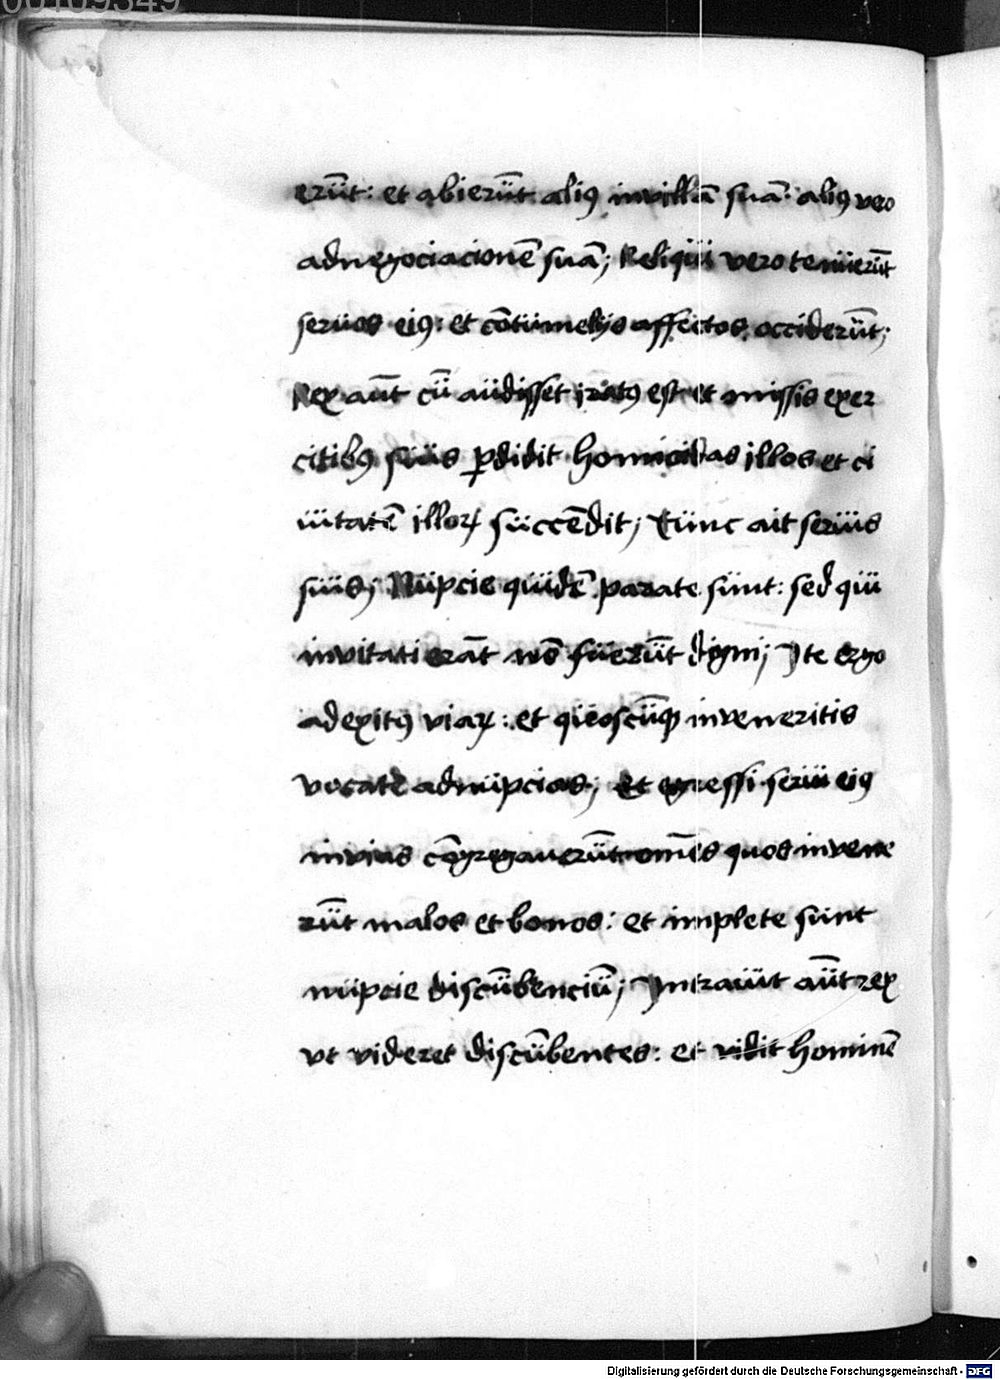 00109349
erūt: et abierūt aliꝰ in villā suā: aliꝰ vero
ad negociacionē suā; Reliqui vero tenuerūt
seruos eiꝰ: et cōtumelijs affectos occiderūt;
Rex aūt cū audisset iratꝰ est et missis exer
citibꝰ suis ꝑdidit homicidas illos et ci
uitatē illoꝝ succēdit; Tunc ait seruis
suis; Nupcie quidē parate sunt: sed qui
invitati erāt nō fuerūt digni; Ite ergo
ad exitꝰ viaꝝ: et quoscūqꝫ inveneritis
vocate ad nupcias; Et egressi serui eiꝰ
in vias cōgregauerūt omēs quos invene
rūt malos et bonos: et implete sunt
nupcie discūbenciū; Intrauit aūt rex
vt videret discūbentes: et vidit hominē
Digitalisierung gefördert durch die Deutsche Forschungsgemeinschaft - DFG